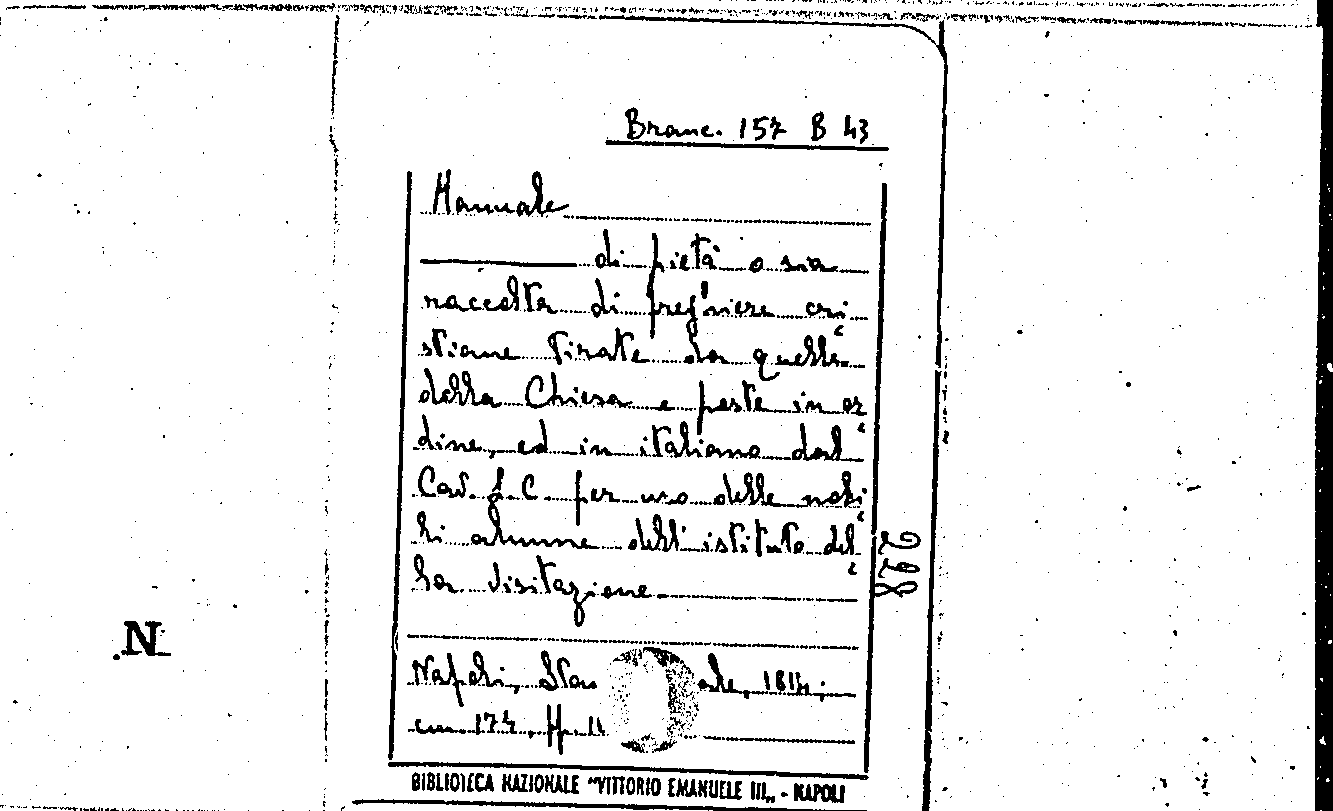 Branc. 157 B 43
Manuale
di pietà o sia
raccolta di preghiere cri-
stiane tirate da quelle
della Chiesa e poste in or-
dine, ed in italiano dal
Cav. L. C. per uso delle nobi-
li alunne dell'istituto del-
la Visitazione
228
N
Napoli, Stam 1814;
cm. 17½, pp. 11
BIBLIOTECA NAZIONALE "VITTORIO EMANUELE III„ - NAPOLI